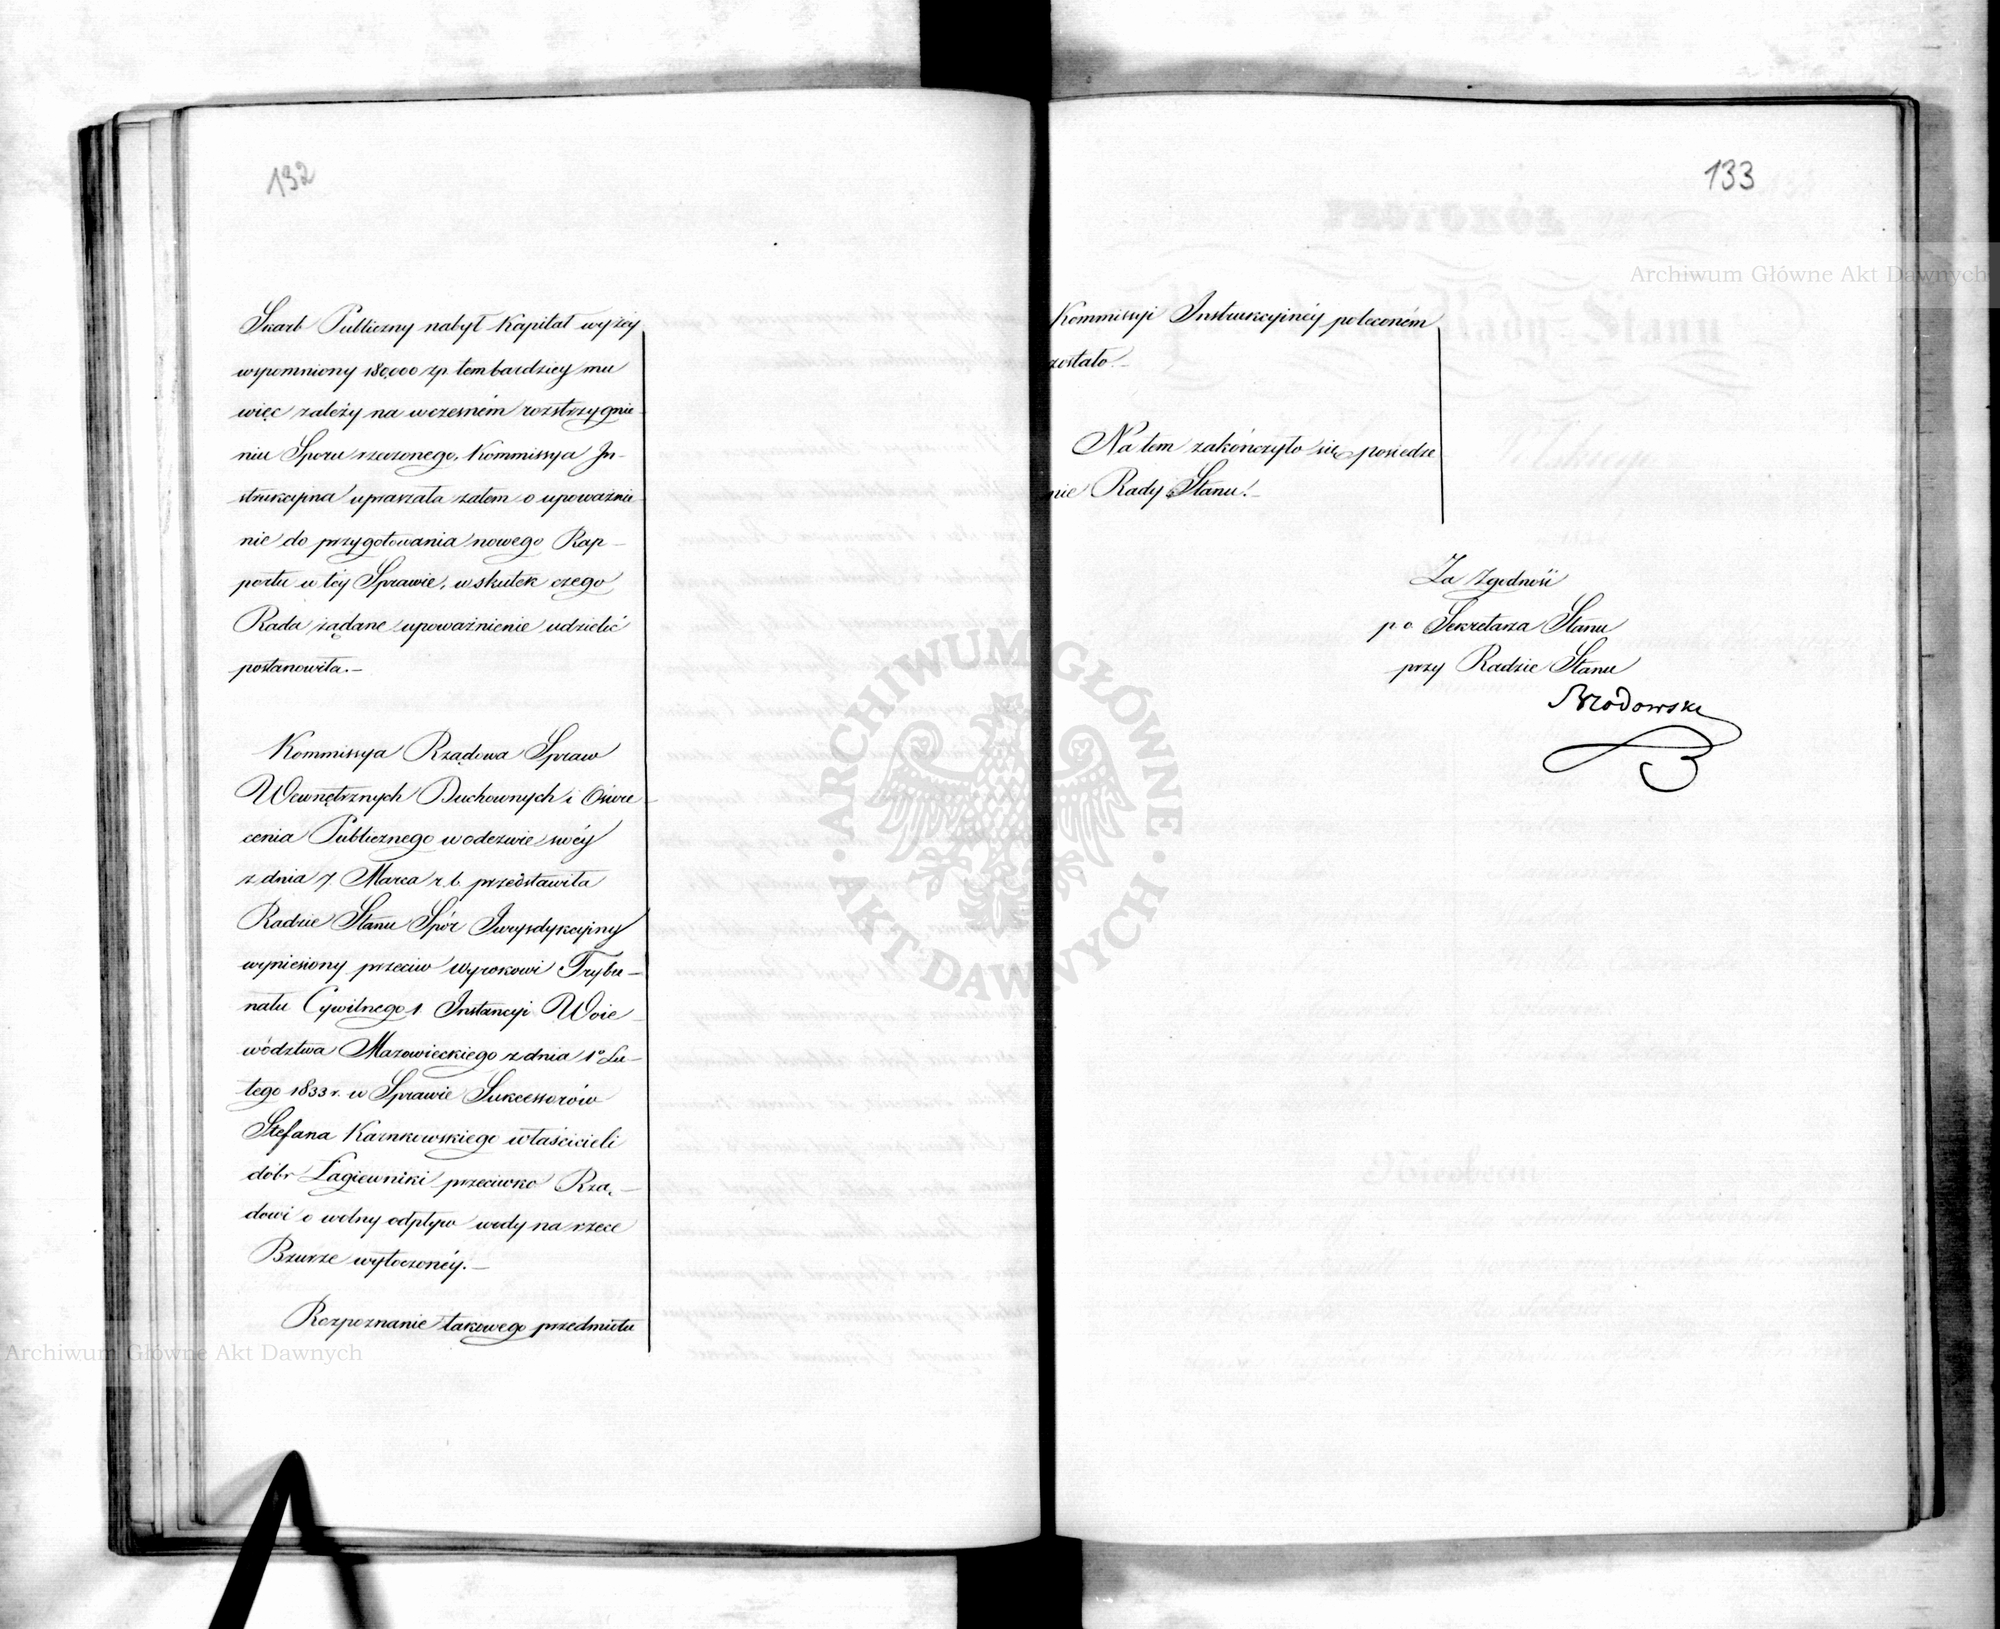 132
Skarb Publiczny nabył Kapitał wyżey
wspomniony 180,000 zp tembardziey mu
więc zależy na wczesném rozstrzygnie-
niu Sporu rzeczonego, Kommissya In-
strukcyina upraszała zatem o upoważnie-
nie do przygotowania nowego Rap-
portu w téy Sprawie, w skutek czego
Rada żądane upoważnienie udzielić
postanowiła.—
Kommissya Rządowa Spraw
Wewnętrznych Duchownych i Oświe-
cenia Publicznego w odezwie swéy
z dnia 7 Marca r. b. przedstawiła
Radzie Stanu Spór Juryzdykcyiny
wyniesiony przeciw wyrokowi Trybu-
nału Cywilnego 1. Instancyi Woie-
wództwa Mazowieckiego z dnia 1o Lu-
tego 1833 r. w Sprawie Sukcessorów
Stefana Karnkowskiego właścicieli
dóbr Łagiewniki przeciwko Rzą-
dowi o wolny odpływ wody na rzece
Bzurze wytoczonéy.—
Rozpoznanie takowego przedmiotu
133
Kommissyi Instrukcyinéy poleconém
zostało.—
Na tem zakończyło się posiedze
nie Rady Stanu.—
Za Zgodność
p. o. Sekretarza Stanu
przy Radzie Stanu
Brodowski
Archiwum Główne Akt Dawnych
Archiwum Główne Akt Dawnych
ARCHIWUM GŁÓWNE
AKT DAWNYCH